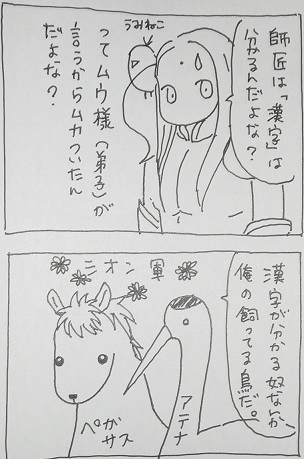 師匠は「漢字」は
分かるんだよな？
うみねこ
ってムウ様（弟子）が
言うからムカついたん
だよな？
漢字が分かる奴なんか
俺の飼ってる鳥だ。
シオン軍
アテナ
ペガ
サス